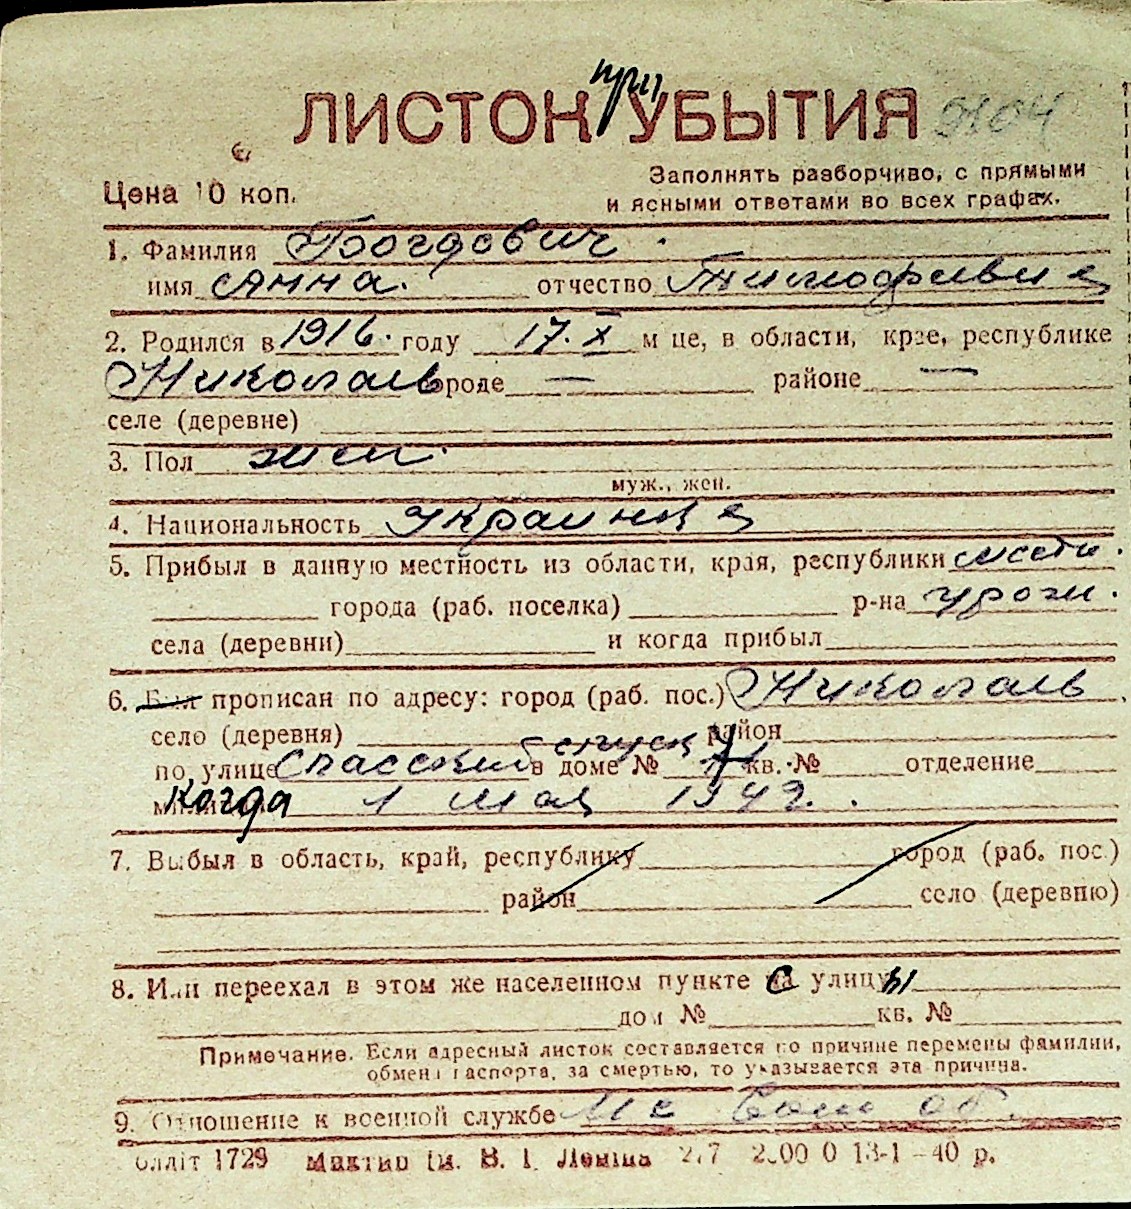 при
ЛИСТОК УБЫТИЯ 9104
Цена 10 коп.
Заполнять разборчиво, с прямыми
и ясными ответами во всех графах.
1. Фамилия Богдович.
имя Анна. отчество Тимофеевна
2. Родился в 1916. году 17.X м це, в области, крае, республике
Николаев ороде — районе —
селе (деревне)
3. Пол жен.
муж., жен.
4. Национальность украинка
5. Прибыл в данную местность из области, края, республики местн.
города (раб. поселка) р-на урож.
села (деревни) и когда прибыл
6. Был прописан по адресу: город (раб. пос.) Николаев
село (деревня) район
по улице Спасский спуск в доме № кв. № отделение
Когда 1 мая 1942.
7. Выбыл в область, край, республику город (раб. пос.)
район село (деревню)
8. Или переехал в этом же населенном пункте с улицы
дом № кв. №
Примечание. Если адресный листок составляется по причине перемены фамилии,
обмена паспорта, за смертью, то указывается эта причина.
9. Отношение к военной службе Не воен об.
1729 ім. В. І. Леніна 13-1-40 р.